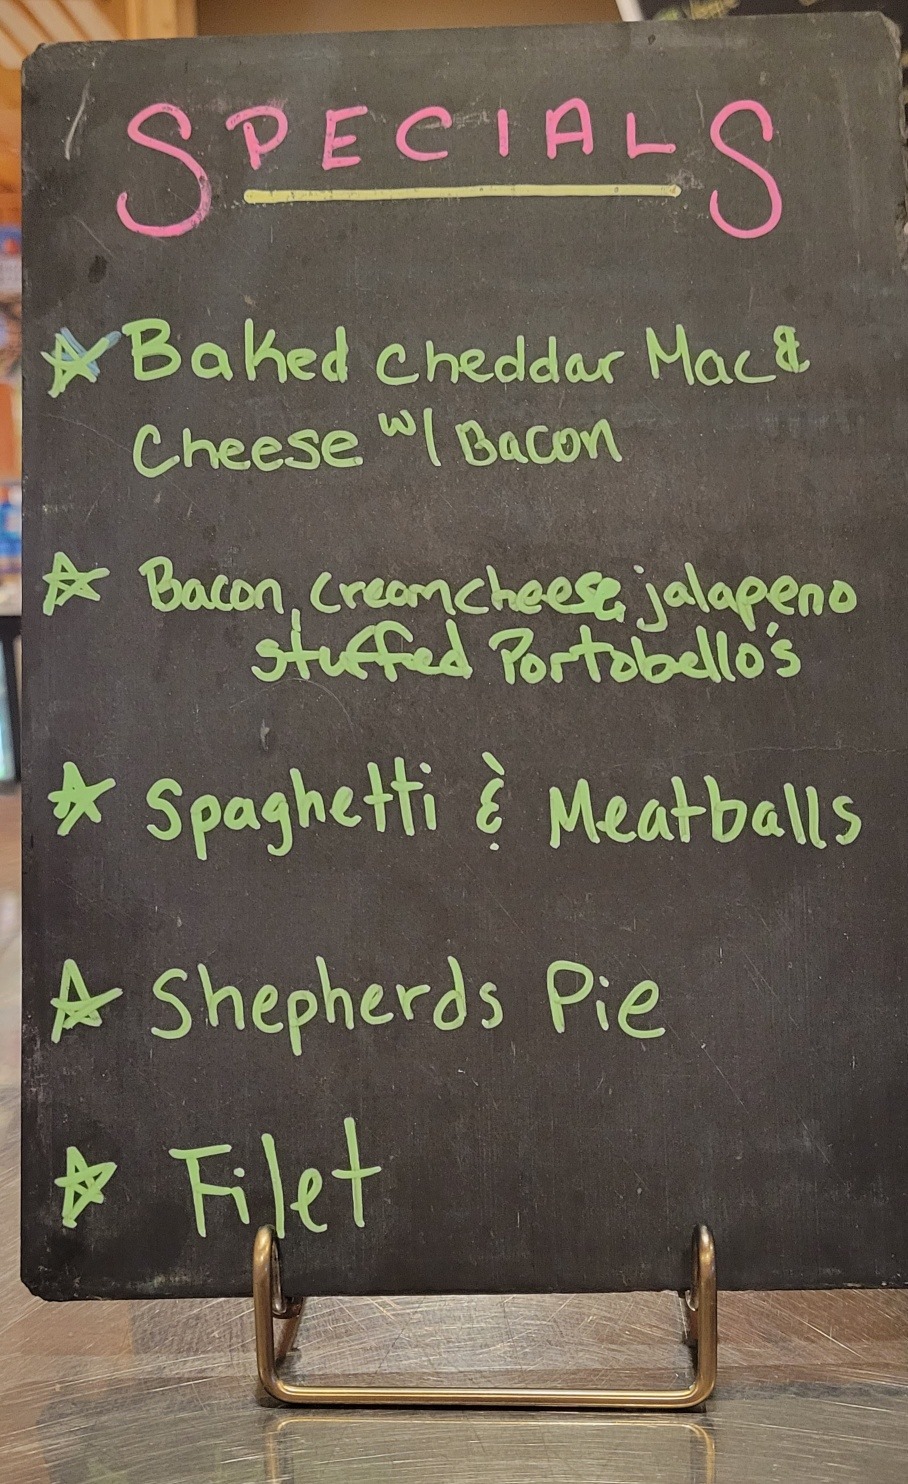 SPECIALS
Baked Cheddar Mac &
Cheese w/ Bacon
Bacon, creamcheese, jalapeno
stuffed Portobello's
Spaghetti & Meatballs
Shepherds Pie
Filet